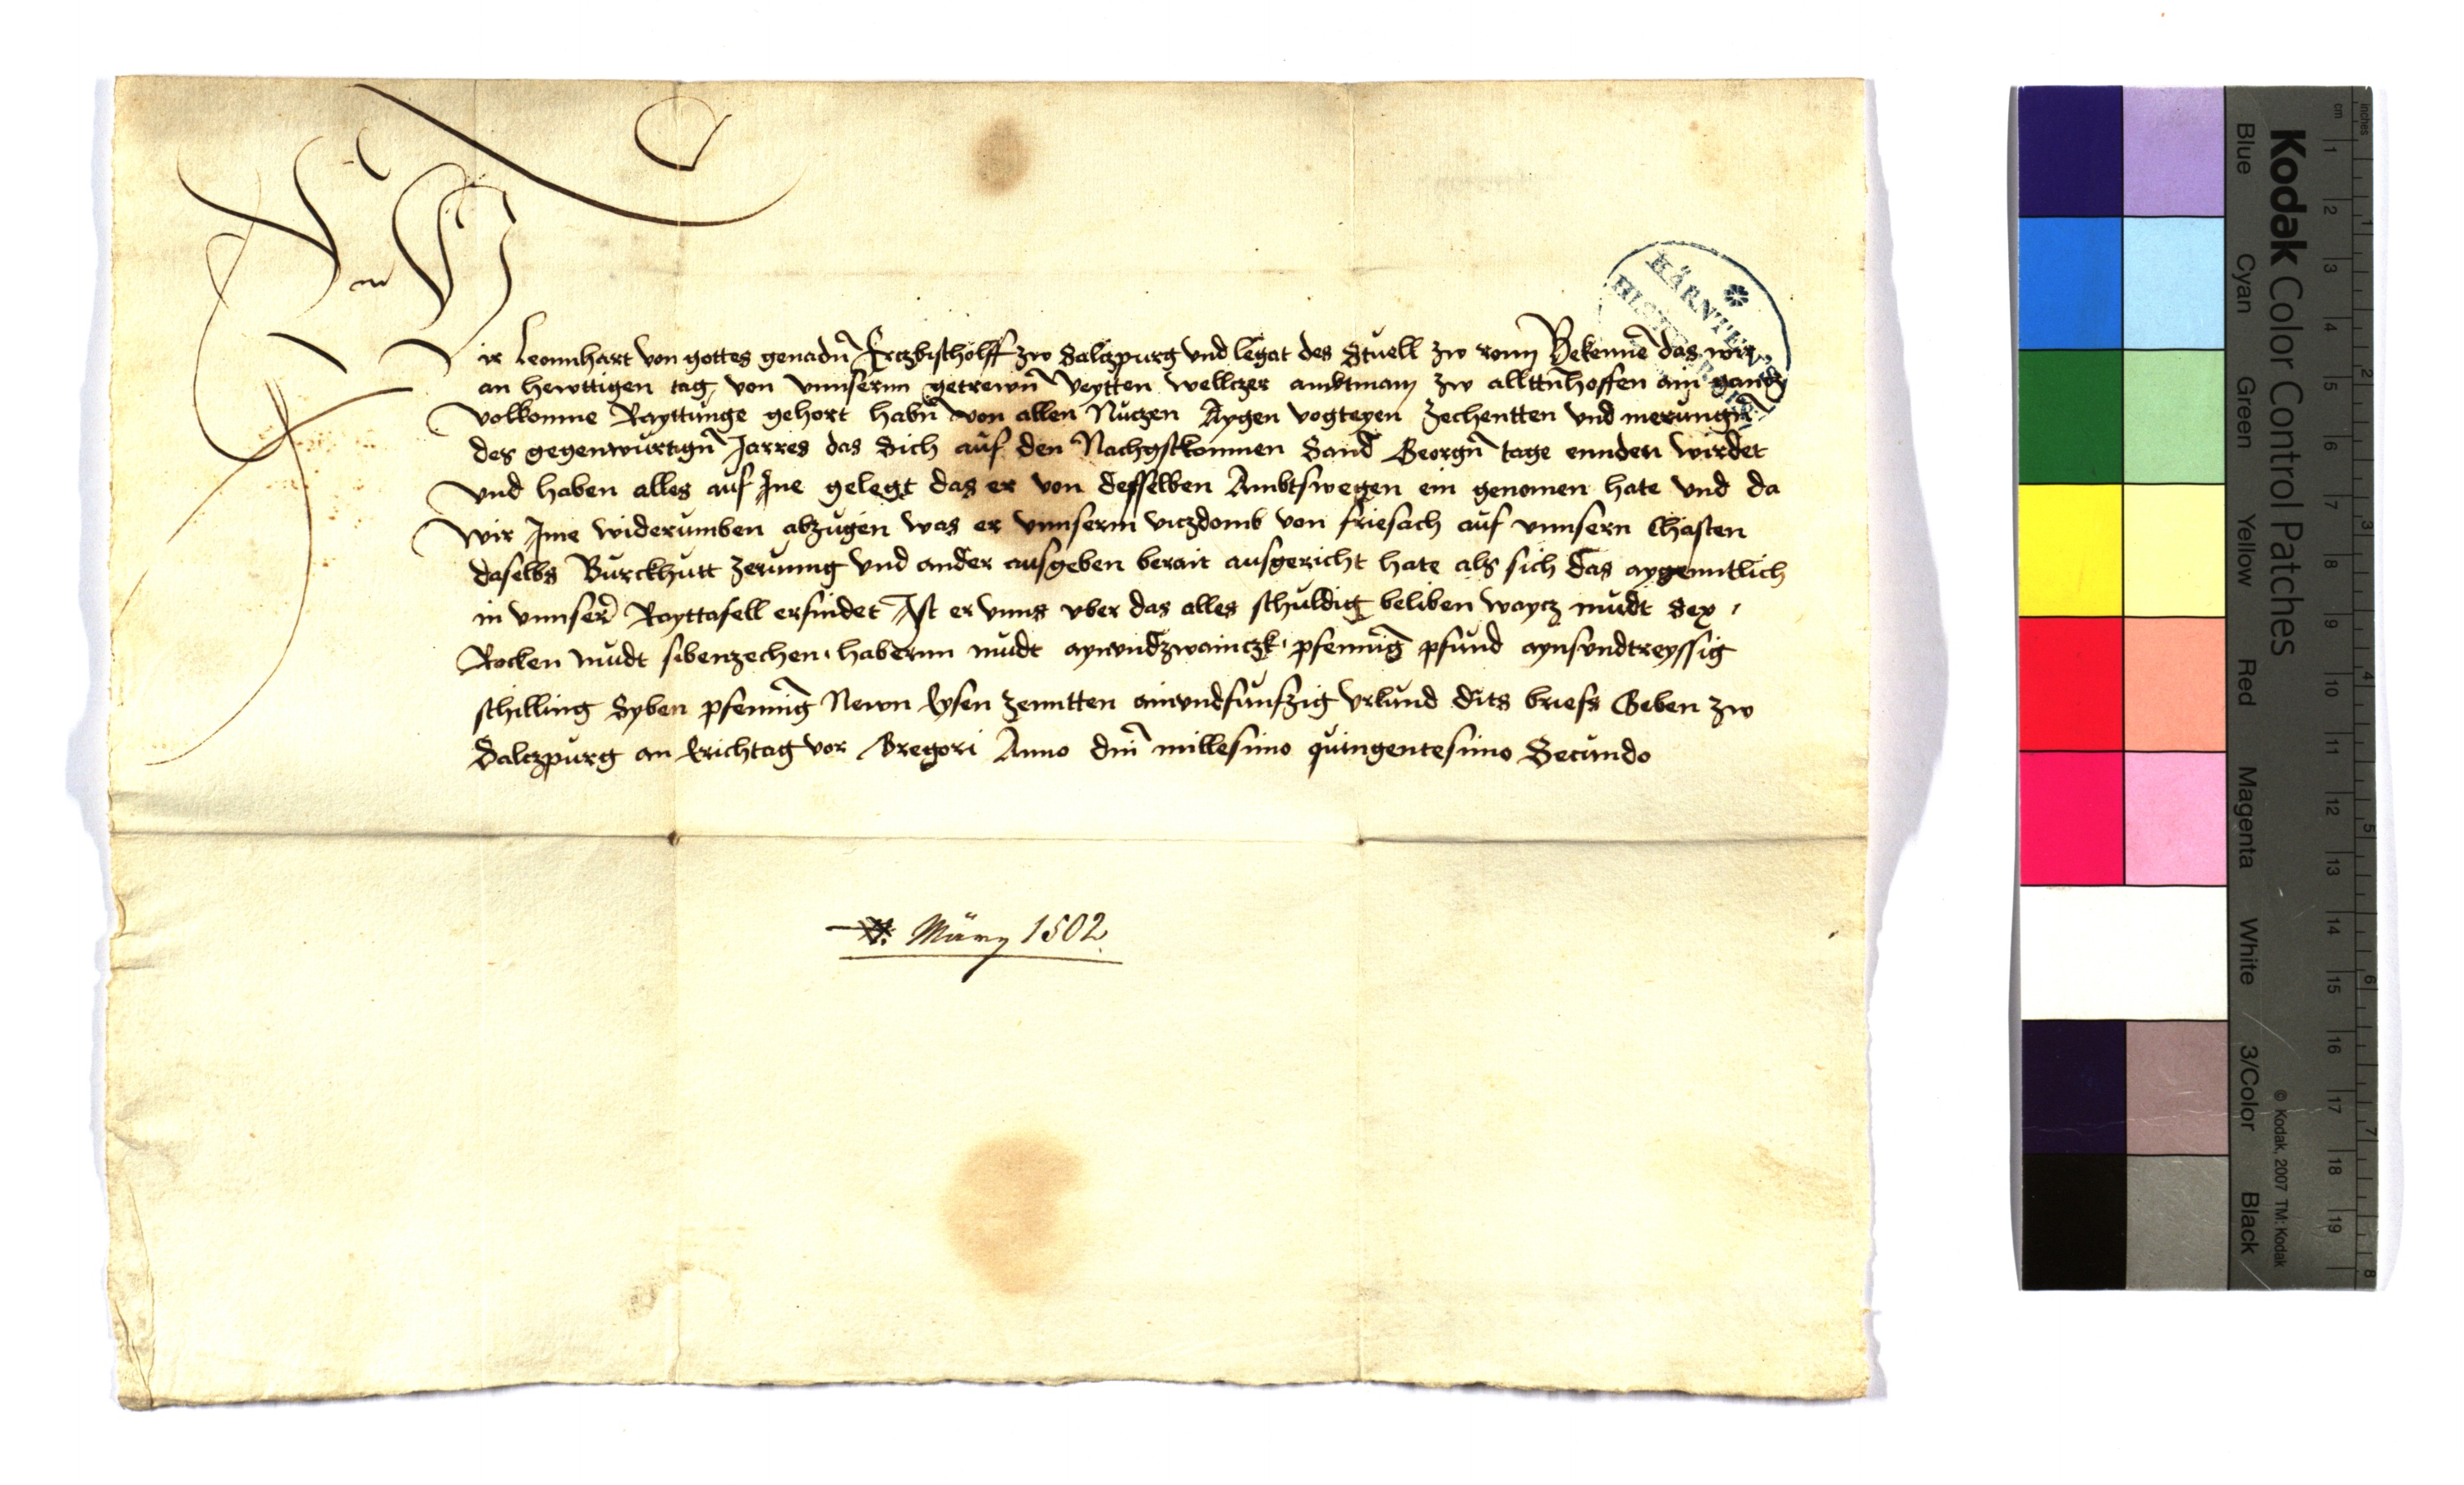 Wir Leonnhart von gottes genadn̄ Erczbischolff zw Salczpurg vnd legat des Stuell zw rom Bekenne das wir
an hewttigen tag von vnnserm getrewn̄ Veytten wellczer ambtmany zw allttnhoffen ain gancz
volkomne Rayttunge gehort habn̄ von allen Nuczen Aygen vogteyen zechentten vnd merungn̄
des gegenwurtign̄ Jarres das Sich auf den Nachgstkomnen Sand Georgn̄ tage ennden wirdet
vnd haben alles auf Jne gelegt das er von desselben Ambtswegen ein genomen hate vnd da
wir Jme widerumben abzugen was er vnnserm viczdomb von friesach auf vnnsern Chasten
daselbs Burckhutt zerunng vnd ander ausgeben berait ausgericht hate als sich das aygenntlich
in vnnser̄ Rayttafell erfindet Ist er vnns vber das alles schuldig beliben waycz mudt Sex
Rocken mudt sibenzechen habernn mudt aynvndzwainczk pfennig pfund aynsvndtreyssig
schilling Syben pfennig Newn Eysen zenntten ainvndfunfzig vrkund dits briefs Geben zw
Salczpurg an Erichtag vor Gregori Anno dni millesimo quingentesimo Secundo
März 1502.
KÄRNT
HIST
Kodak Color Control Patches
Blue Cyan Green Yellow Red Magenta White 3/Color Black
© Kodak, 2007 TM: Kodak
inches 1 2 3 4 5 6 7 8
cm 1 2 3 4 5 6 7 8 9 10 11 12 13 14 15 16 17 18 19